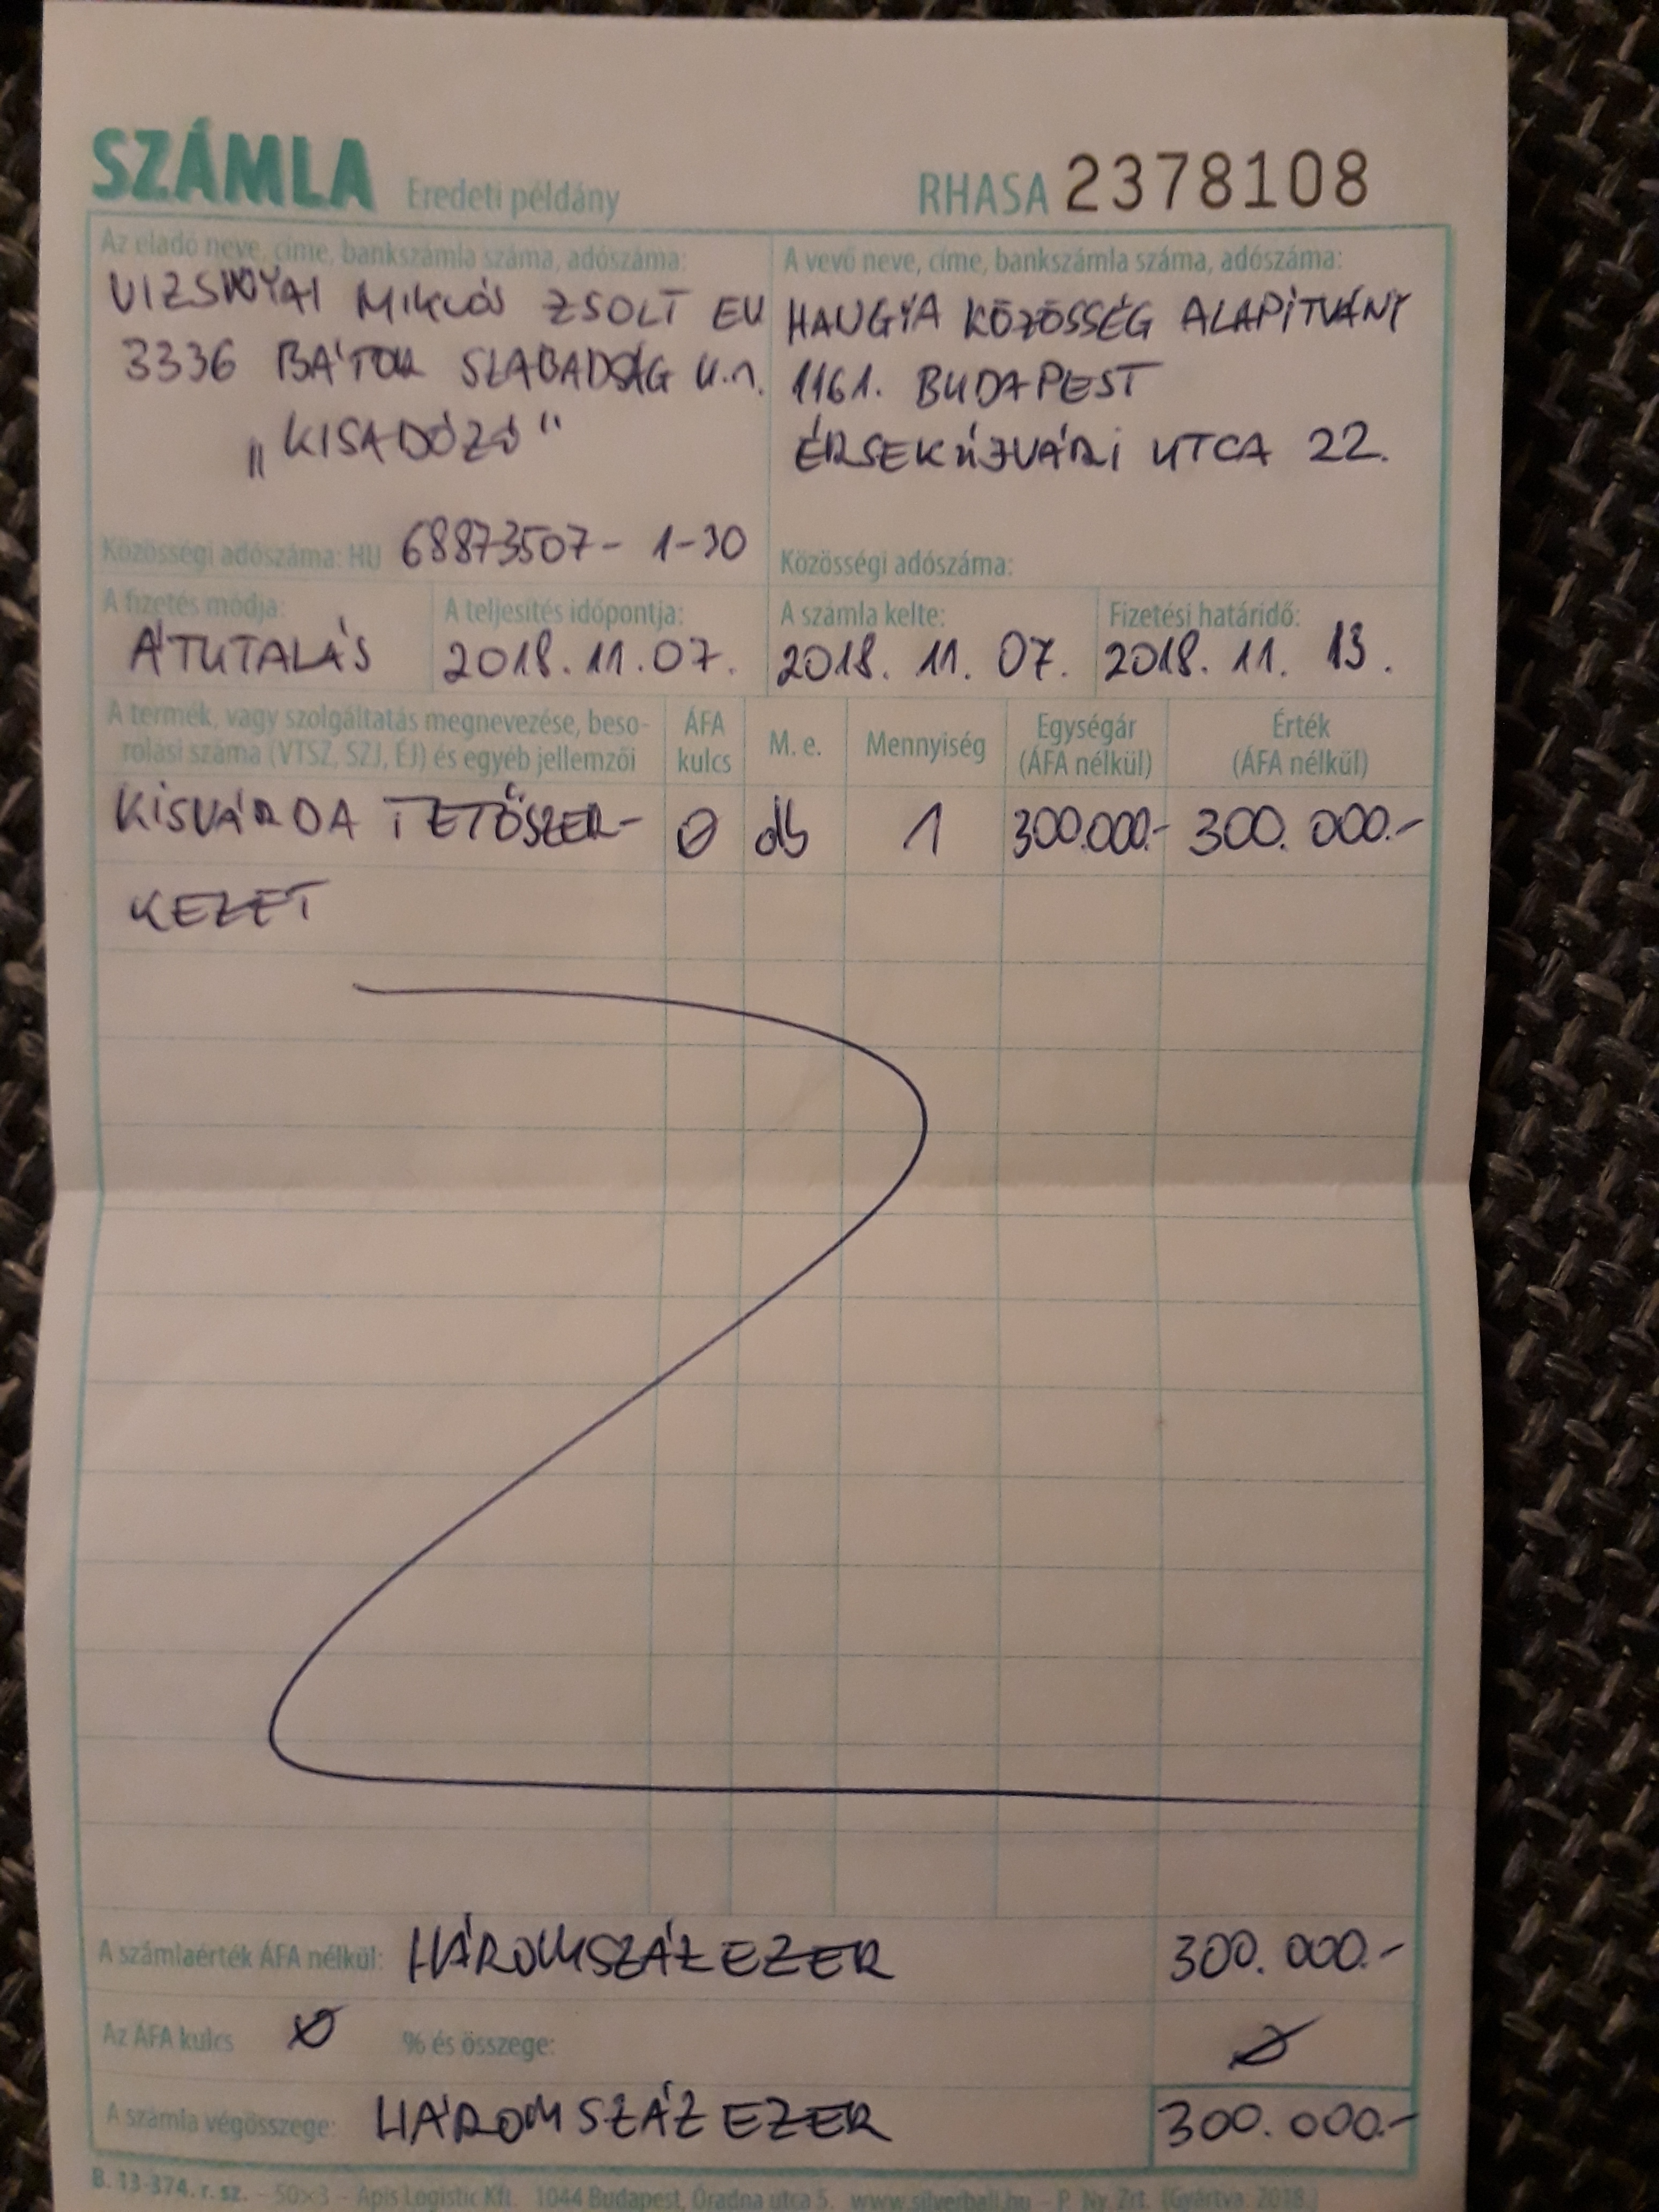 SZÁMLA Eredeti példány RHASA 2378108
Az eladó neve, címe, bankszámla száma, adószáma:
VIZSNYAI MIKLÓS ZSOLT EV
3336 BÁTOR SZABADSÁG U.1.
„KISADÓZÓ"
Közösségi adószáma: HU 68873507-1-30
A vevő neve, címe, bankszámla száma, adószáma:
HANGYA KÖZÖSSÉG ALAPÍTVÁNY
1161. BUDAPEST
ÉRSEKÚJVÁRI UTCA 22.
Közösségi adószáma:
A fizetés módja: A teljesítés időpontja: A számla kelte: Fizetési határidő:
ÁTUTALÁS 2018.11.07. 2018. 11. 07. 2018. 11. 13.
A termék, vagy szolgáltatás megnevezése, beso-
rolási száma (VTSZ, SZJ, ÉJ) és egyéb jellemzői
ÁFA
kulcs
M. e.
Mennyiség
Egységár
(ÁFA nélkül)
Érték
(ÁFA nélkül)
KISVÁRDA TETŐSZER- 0 db 1 300.000.- 300.000.-
KEZET
A számlaérték ÁFA nélkül: HÁROMSZÁZEZER 300.000.-
Az ÁFA kulcs 0 % és összege: 0
A számla végösszege: HÁROMSZÁZEZER 300.000.-
B. 13-374. r. sz. - 50×3 - Apis Logistic Kft. 1044 Budapest, Óradna utca 5. www.silverball.hu - P. Ny. Zrt. (Gyártva: 2018.)